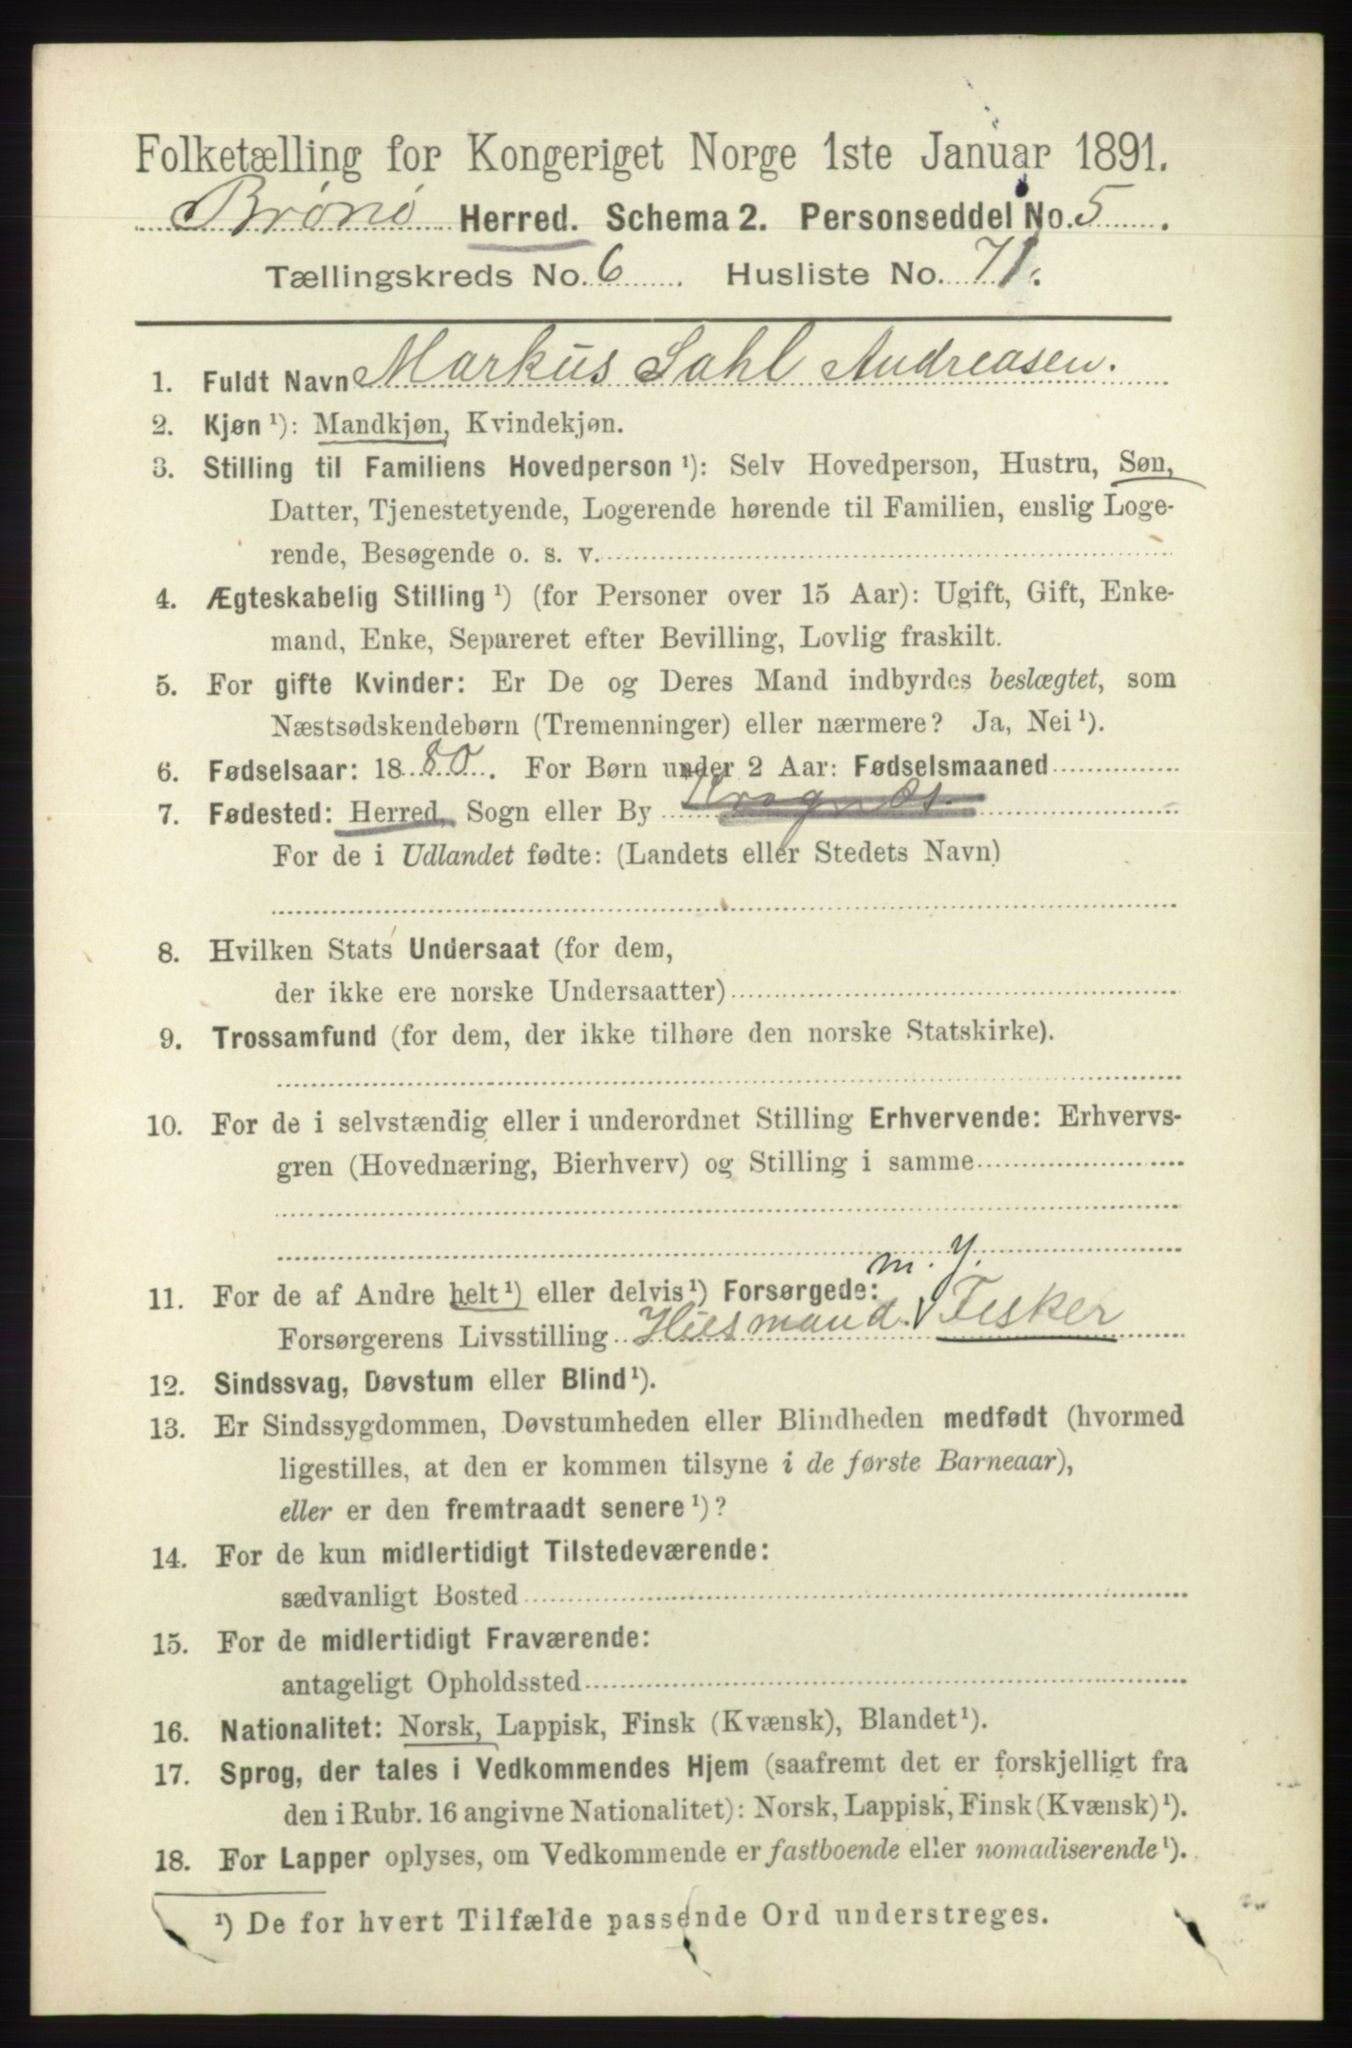 Folketælling for Kongeriget Norge 1ste Januar 1891.
Brønø Herred. Schema 2. Personseddel No. 5.
Tællingskreds No. 6. Husliste No. 71.
1. Fuldt Navn Markus Sahl Andreasen.
2. Kjøn ¹): Mandkjøn, Kvindekjøn.
3. Stilling til Familiens Hovedperson ¹): Selv Hovedperson, Hustru, Søn,
Datter, Tjenestetyende, Logerende hørende til Familien, enslig Loge-
rende, Besøgende o. s. v.
4. Ægteskabelig Stilling ¹) (for Personer over 15 Aar): Ugift, Gift, Enke-
mand, Enke, Separeret efter Bevilling, Lovlig fraskilt.
5. For gifte Kvinder: Er De og Deres Mand indbyrdes beslægtet, som
Næstsødskendebørn (Tremenninger) eller nærmere? Ja, Nei ¹).
6. Fødselsaar: 1880. For Børn under 2 Aar: Fødselsmaaned
7. Fødested: Herred, Sogn eller By
For de i Udlandet fødte: (Landets eller Stedets Navn)
8. Hvilken Stats Undersaat (for dem,
der ikke ere norske Undersaatter)
9. Trossamfund (for dem, der ikke tilhøre den norske Statskirke).
10. For de i selvstændig eller i underordnet Stilling Erhvervende: Erhvervs-
gren (Hovednæring, Bierhverv) og Stilling i samme
m. J.
11. For de af Andre helt ¹) eller delvis ¹) Forsørgede:
Forsørgerens Livsstilling Husmand. Fisker
12. Sindssvag, Døvstum eller Blind ¹).
13. Er Sindssygdommen, Døvstumheden eller Blindheden medfødt (hvormed
ligestilles, at den er kommen tilsyne i de første Barneaar),
eller er den fremtraadt senere ¹)?
14. For de kun midlertidigt Tilstedeværende:
sædvanligt Bosted
15. For de midlertidigt Fraværende:
antageligt Opholdssted
16. Nationalitet: Norsk, Lappisk, Finsk (Kvænsk), Blandet ¹).
17. Sprog, der tales i Vedkommendes Hjem (saafremt det er forskjelligt fra
den i Rubr. 16 angivne Nationalitet): Norsk, Lappisk, Finsk (Kvænsk) ¹).
18. For Lapper oplyses, om Vedkommende er fastboende eller nomadiserende ¹).
¹) De for hvert Tilfælde passende Ord understreges.